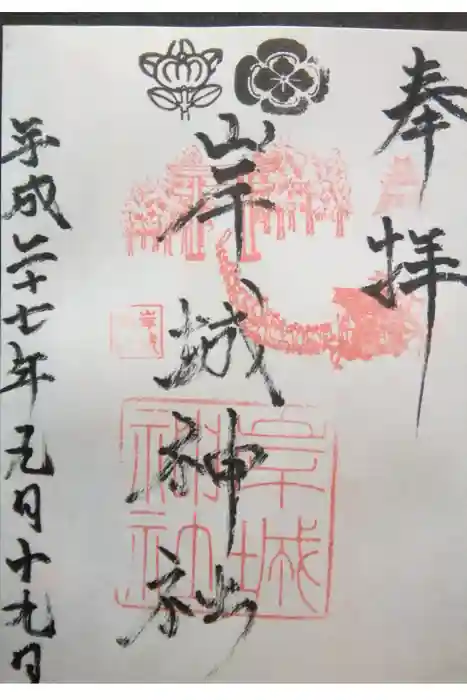 奉拝
岸城神社
岸城神社
平成二十七年元月十九日